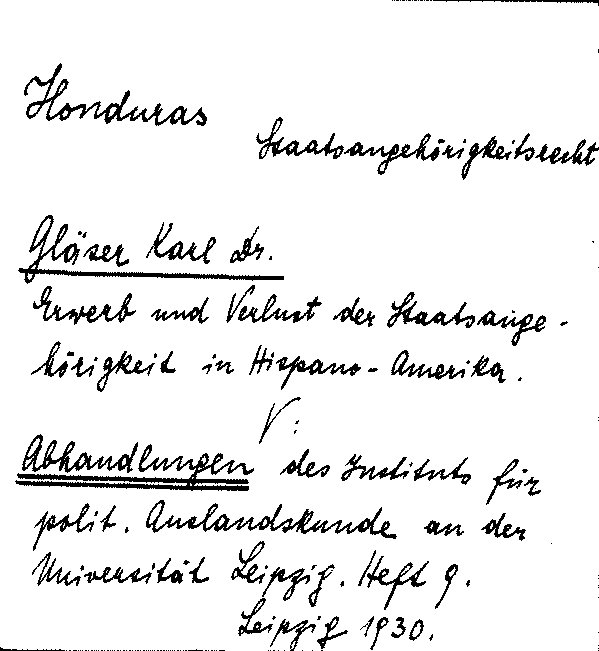 Honduras
Staatsangehörigkeitsrecht
Gläser Karl Dr.
Erwerb und Verlust der Staatsange-
hörigkeit in Hispano-Amerika.
V:
Abhandlungen des Instituts für
polit. Auslandskunde an der
Universität Leipzig. Heft 9.
Leipzig 1930.